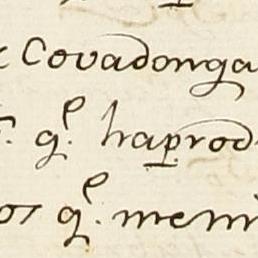 Covadonga
q.e haprod
os q.e meni